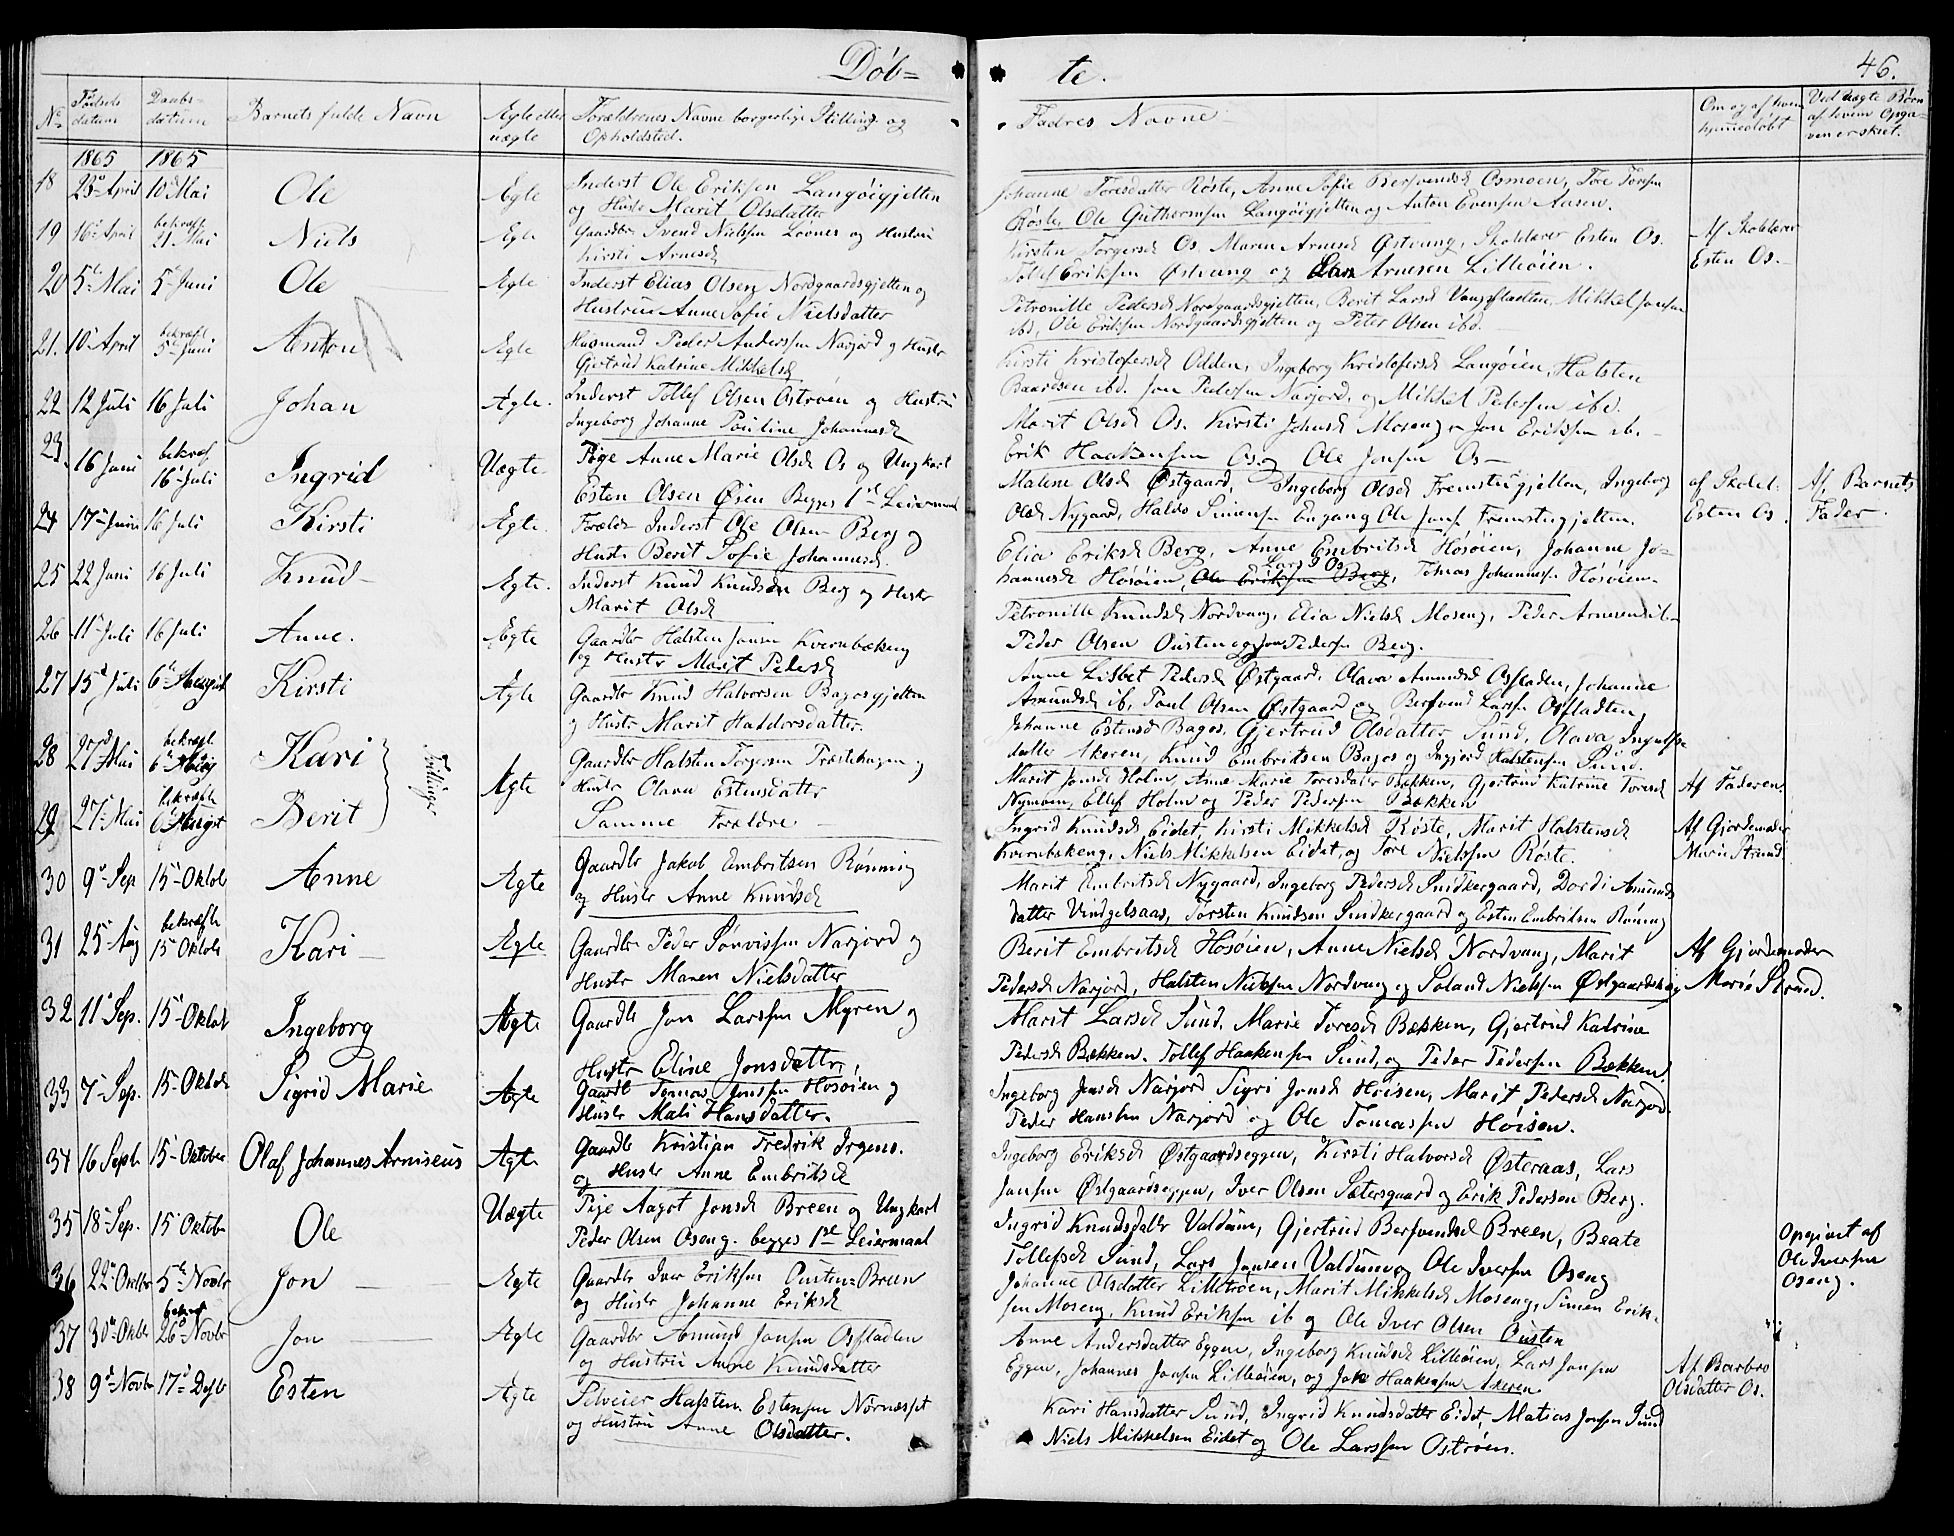 Døb=
te.
46.
No
Fødsels
datum
Daabs-
datum
Barnets fulde Navn
Ægte eller
uægte
Forældrenes Navne borgerlige Stilling og
Opholdsted.
Fadres Navne
Om og af hvem
hjemmedøbt
Ved uægte Børn
af hvem Opga-
ven er skeet.
1865 1865
18 23de April 10de Mai Ole Ægte
Inderst Ole Eriksen Langøigjelten
og Hustr Marit Olsdatter
Johanne Toresdatter Røste, Anne Sofie Bersvendsd Osmoen, Tore Torsen
Røste, Ole Guthormsen Langøigjelten og Anton Evensen Aasen.
19 16de April bekræft 21 Mai Niels Ægte
Gaardbr Svend Nielsen Lovnes og Hustru
Kirsti Arnesd
Kirsten Torgersd Os. Maren Arnesd Østvang, Skolelærer Esten Os.
Tollef Eriksen Østvang og Lars Arnesen Lilleøien.
Af Skolelærer
Esten Os.
20 5te Mai 5te Juni Ole Ægte
Inderst Elias Olsen Nordgaardsgjelten og
Hustrue Anne Sofie Nielsdatter
Petronille Pedersd Nordgaardsgjelten, Berit Larsd Vangsfladten, Mikkel Jonsen
ibd, Ole Eriksen Nordgaardsgjelten og Peter Olsen ibd.
21. 10de April bekræft 5te Juni Anton Ægte
Husmand Peder Anderssen Narjord og Hustr
Gjertrud Katrine Mikkelsd
Kirsti Kristofersd Odden, Ingeborg Kristofersd Langøien, Halsten
Baardsen ibd. Jon Pedersen Narjord, og Mikkel Pedersen ibd.
22 12 Juli 16 Juli Johan Ægte.
Inderst Tollef Olsen Østrøen og Hustru
Ingeborg Johanne Pauline Johannesd
Marit Olsd Os. Kirsti Johnsd Moseng, Jon Eriksen ib.
Erik Haakensen Os og Ole Jonsen Os
23. 16 Juni bekræf 16de Juli Ingrid Uægte
Pige Anne Marie Olsd Os og Ungkarl
Esten Olsen Øien Begges 1ste Leiermaal
Malene Olsd Østgaard, Ingeborg Olsd Fremstugjelten, Ingeborg
Olsd Nygaard, Haldo Simensen Engang Ole Jons Fremstugjelten.
af Skolel.
Esten Os.
Af Barnets
Fader.
24 17de Juni 16 Juli Kirsti Ægte
Foræld: Inderst Ole Olsen Berg og
Hustr Berit Sofie Johannesd.
Elia Eriksd Berg, Anne Embritsd Høsøien, Johanne Jo-
hannesd Høsøien, Ole Eriksen Berg, Tomas Johannesen Høsøien.
Lars Os
25 22 Juni 16 Juli Knud Ægte.
Inderst Knud Knudsen Berg og Hustr
Marit Olsd
Petronille Knudsd Nordvang, Elia Nielsd Moseng, Peder Arnesen ib.
Peder Olsen Ousten og Jon Pedersen Berg.
26 11te Juli 16 Juli Anne. Ægte
Gaardbr Halsten Jonsen Kvernbækeng
og Hustr Marit Pedersd
Anne Lisbet Pedersd Østgaard. Olava Amundsd Osfladen, Johanne
Amundsd ib, Poul Olsen Østgaard og Bersvend Larsen Osfladten,
27 15de Juli 6te August Kirsti Ægte
Gaardbr Knud Halvorsen Bagosgjelten
og Hustr Marit Haldorsdatter.
Johanne Estensd Bagos, Gjertrud Olsdatter Sund, Olava Ingulfs-
datter Akeren, Knud Embritsen Bagos og Ingjord Halstensen Sund.
28 27de Mai bekræft 6te Aug Kari
Tvillinger
Ægte
Gaardbr Halsten Torgersen Træsthagen og
Hustr Olava Estensdatter
Marit Jonsd Holm, Anne Marie Toresdatter Bækken, Gjertrud Katrine Toresd
Nymoen, Ellef Holm og Peder Pedersen Bækken
Af Faderen.
29 27de Mai bekræft 6te August Berit
Samme Forældre
Ingrid Knudsd Eidet, Kirsti Mikkelsd Røste, Marit Halstensd
Kvernbækeng, Niels Mikkelsen Eidet, og Tore Nielsen Røste.
Af Gjordemoder
Marie Strand
30 9de Sep 15de Oktob Anne Ægte
Gaardbr Jakob Embritsen Rønning
og Hustr Anne Knudsd
Marit Embritsd Nygaard, Ingeborg Pedersd Snidkergaard, Dordi Amunds
datter Vindgelsaas, Torsten Knudsen Snidkergaard og Esten Embritsen Røning
31 25de Aug bekræfte 15 Oktob Kari Ægte
Gaardbr Peder Sørvissen Narjord og
Hustr Maren Nielsdatter
Berit Embritsd Høsøien, Anne Nielsd Nordvang, Marit
Pedersd Narjord, Halsten Nielsen Nordvang og Soland Nielsen Østgaardshaug
Af Gjordemoder
Marie Strand.
32 11te Sep. 15de Oktob Ingeborg Ægte
Gaardbr Jon Larssen Myren og
Hustr Eline Jonsdattr,
Marit Larsd Sund, Marie Toresd Bækken, Gjertrud Katrine
Pedersd Bækken. Tollef Haakensen Sund, og Peder Pedersen Bækken.
33 7de Sep. 15de Oktob Sigrid Marie Ægte
Gaardb Tomas Jonssen Høsøien og
Hustr Mali Hansdatter.
Ingeborg Jonsd Narjord Sigri Jonsd Høisen, Marit Pedersd Narjord.
Peder Hansen Narjord og Ole Tomassen Høisen.
34 16 Septb 15de Oktober Olaf Johannes Arniseus Ægte
Gaardb Kristian Fredrik Irgens.
og Hustr Anne Embritsd
Ingeborg Eriksd Østgaardseggen, Kirsti Halvorsd Østeraas, Lars
Jonsen Østgaardseggen, Iver Olsen Sætersgaard og Erik Pedersen Berg.
35 18de Sep. 15de Oktobr Ole Uægte
Pige Aagot Jonsd Breen og Ungkarl
Peder Olsen Oseng. begges 1ste Leiermaal
Ingrid Knudsdattr Valdum, Gjertrud Bersvendsd Breen, Beate
Tollefsd Sund, Lars Jonsen Valdum og Ole Iversen Oseng
Opgivet af
Ole Iversen
Oseng.
36 22de Oktbr 5te Novbr Jon Ægte
Gaardbr Iver Eriksen Ousten=Breen
og Hustr Johanne Eriksd
Johanne Olsdatter Lilletrøen, Marit Mikkelsd Moseng, Simen Erik-
sen Moseng, Knud Eriksen ib og Ole Iver Olsen Ousten
37 30te Oktbr bekræf 26de Novbr Jon Ægte
Gaardbr Amund Jonsen Osfladen
og Hustru Anne Knudsdatter
Anne Andersdatter Eggen, Ingeborg Knudsd Lilleøien, Lars Jonsen
Eggen, Johannes Jonsen Lilleøien, og Jon Haakensen Akeren
Af Barbro
Olsdatter Os.
38 9de Novbr 17de Desbr Esten Ægte
Selveier Halsten Estensen Nørnæsset
og Hustru Anne Olsdatter.
Kari Hansdatter Sund, Ingrid Knudsdatter Eidet, Matias Jonsen Sund
Niels Mikkelsen Eidet og Ole Larssen Ostrøen.